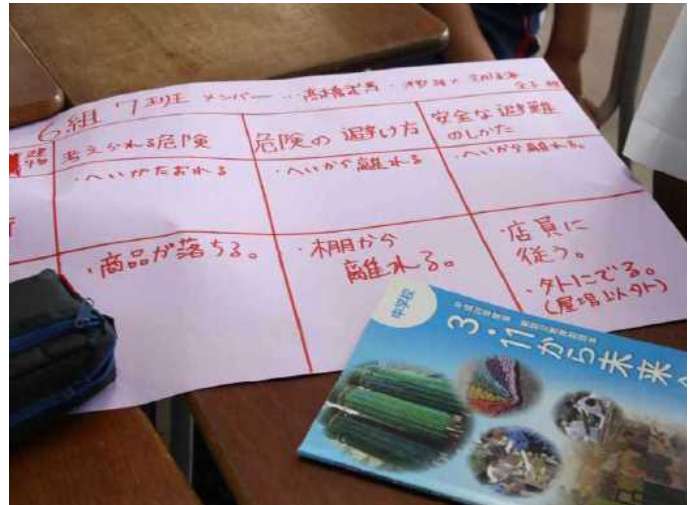 6組 7班 メンバー
考えられる危険
危険の避け方
安全な避難
のしかた
・へいがたおれる
・へいから離れる
・へいから離れる。
・商品が落ちる。
・棚から
離れる。
・店員に
従う。
・外にでる。
(屋場以外)
中学校
3・11から未来へ